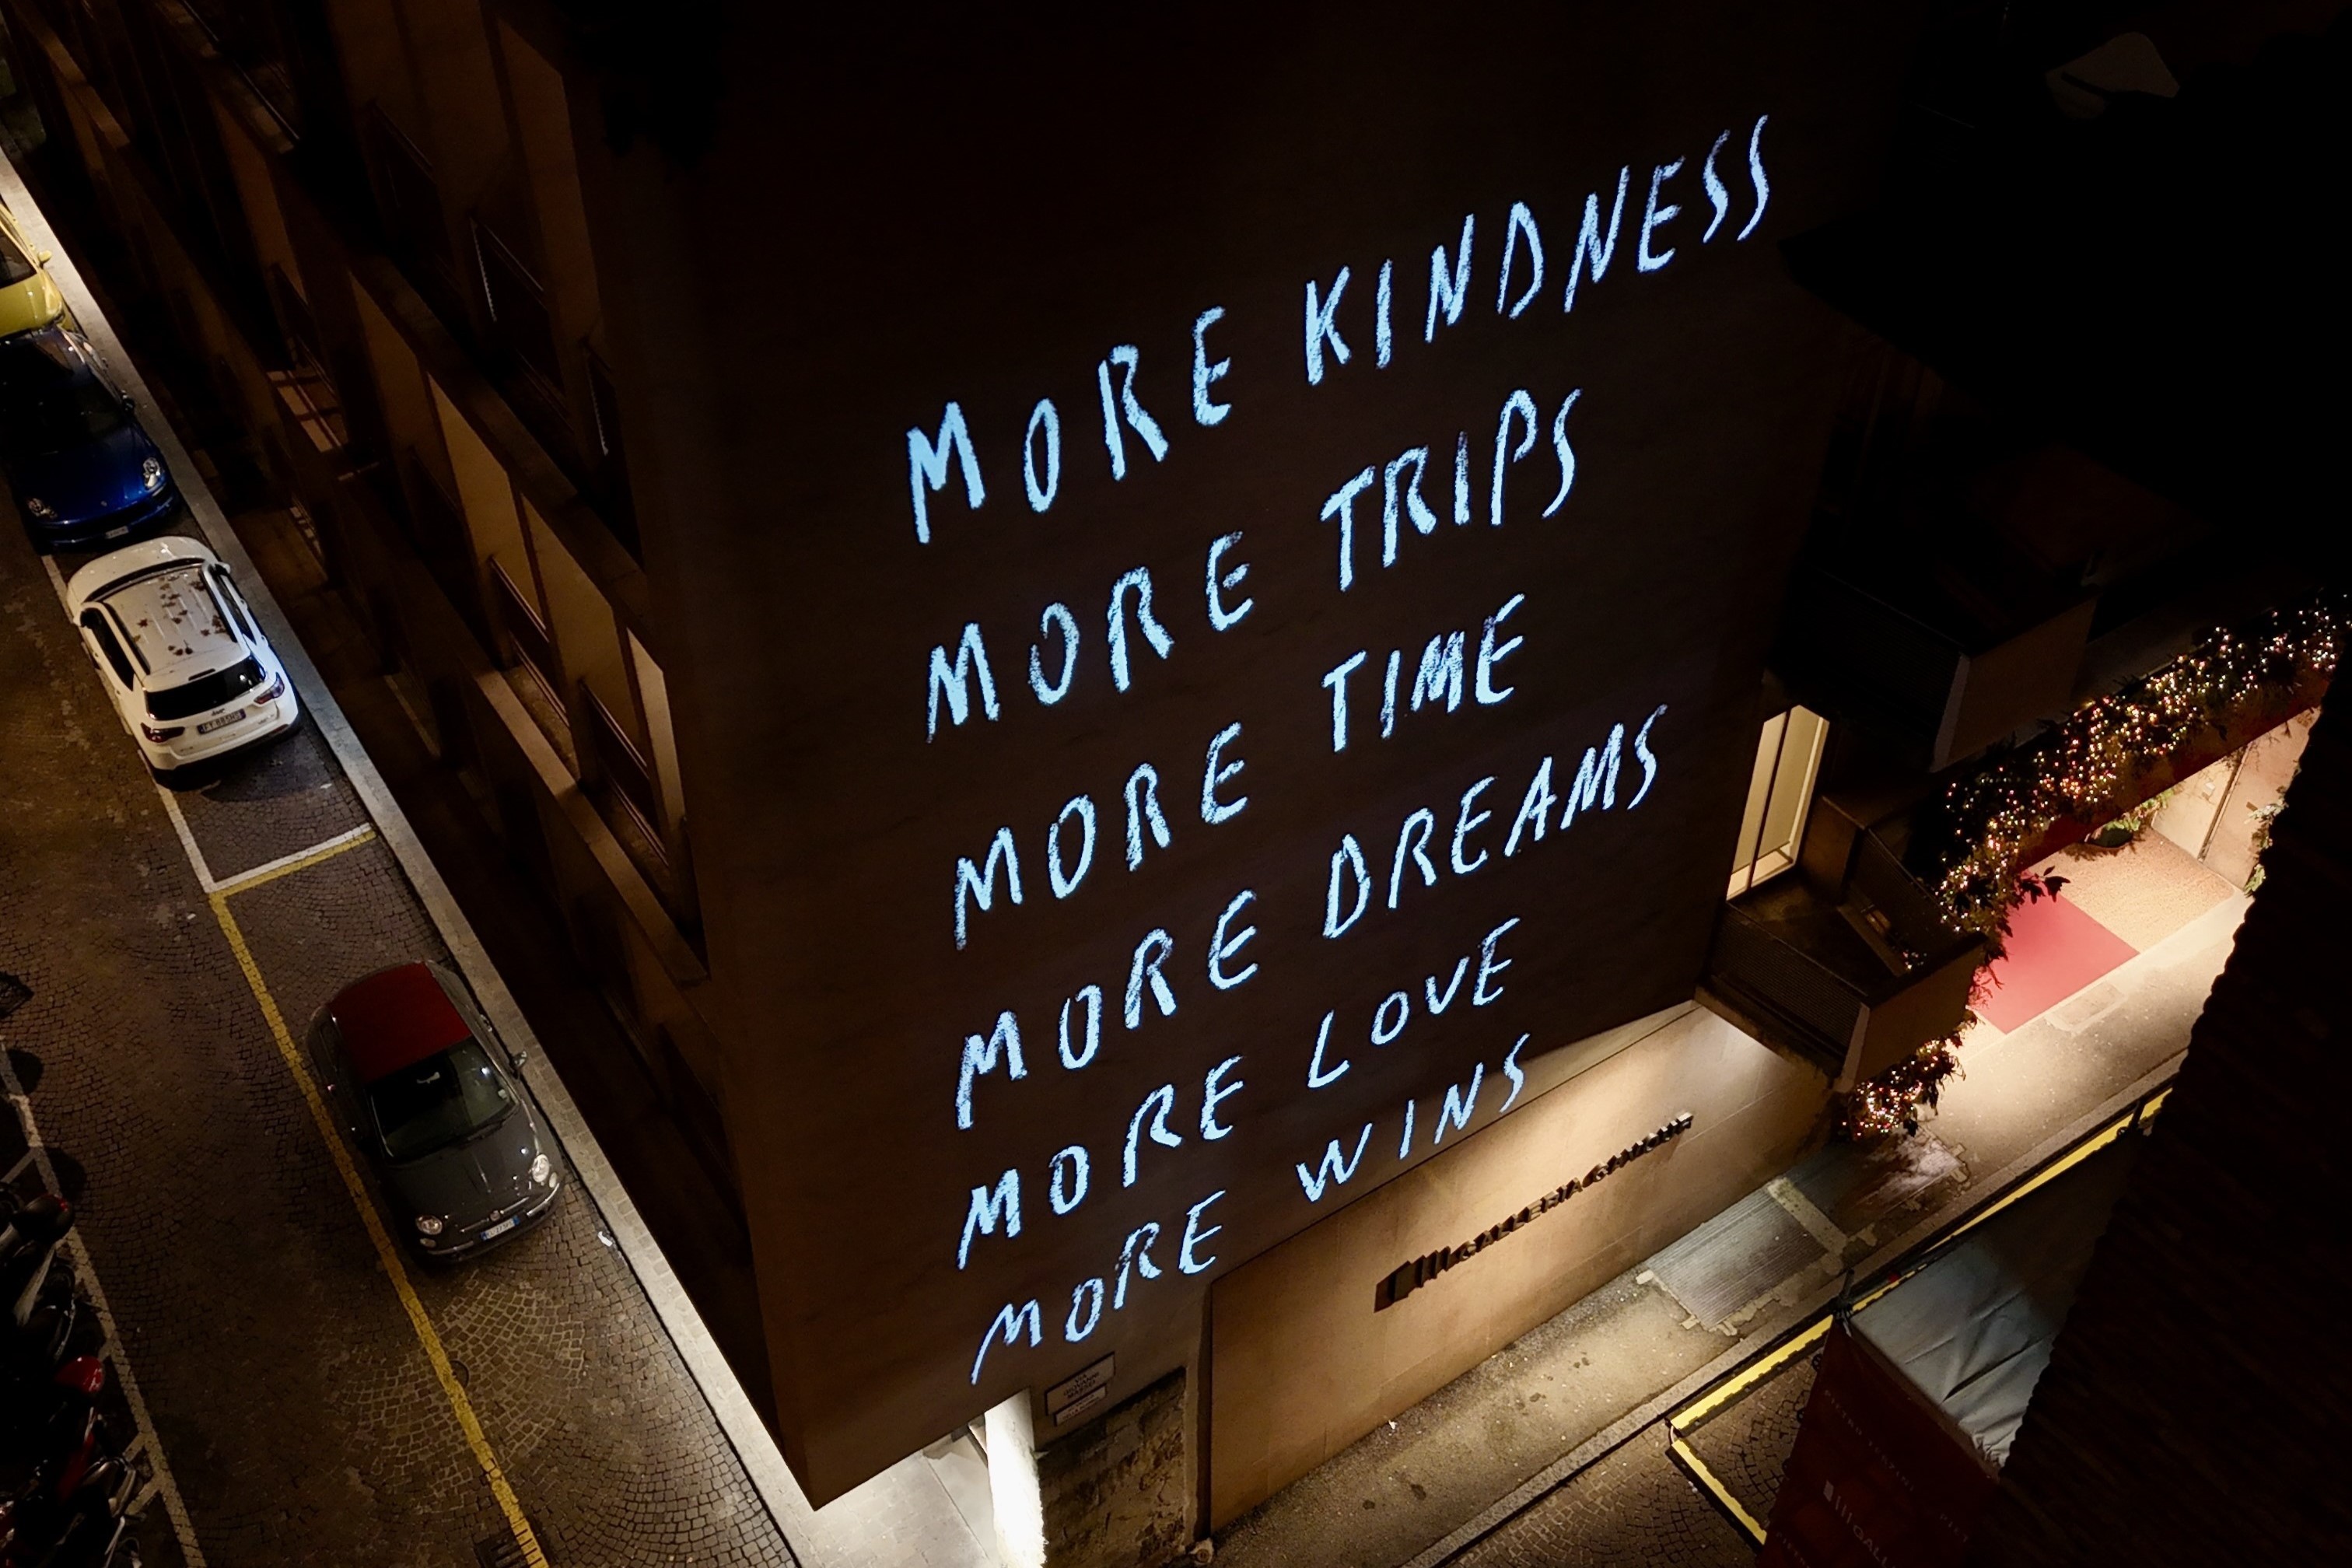 MORE KINDNESS
MORE TRIPS
MORE TIME
MORE DREAMS
MORE LOVE
MORE WINS
GALLERIA
VIA